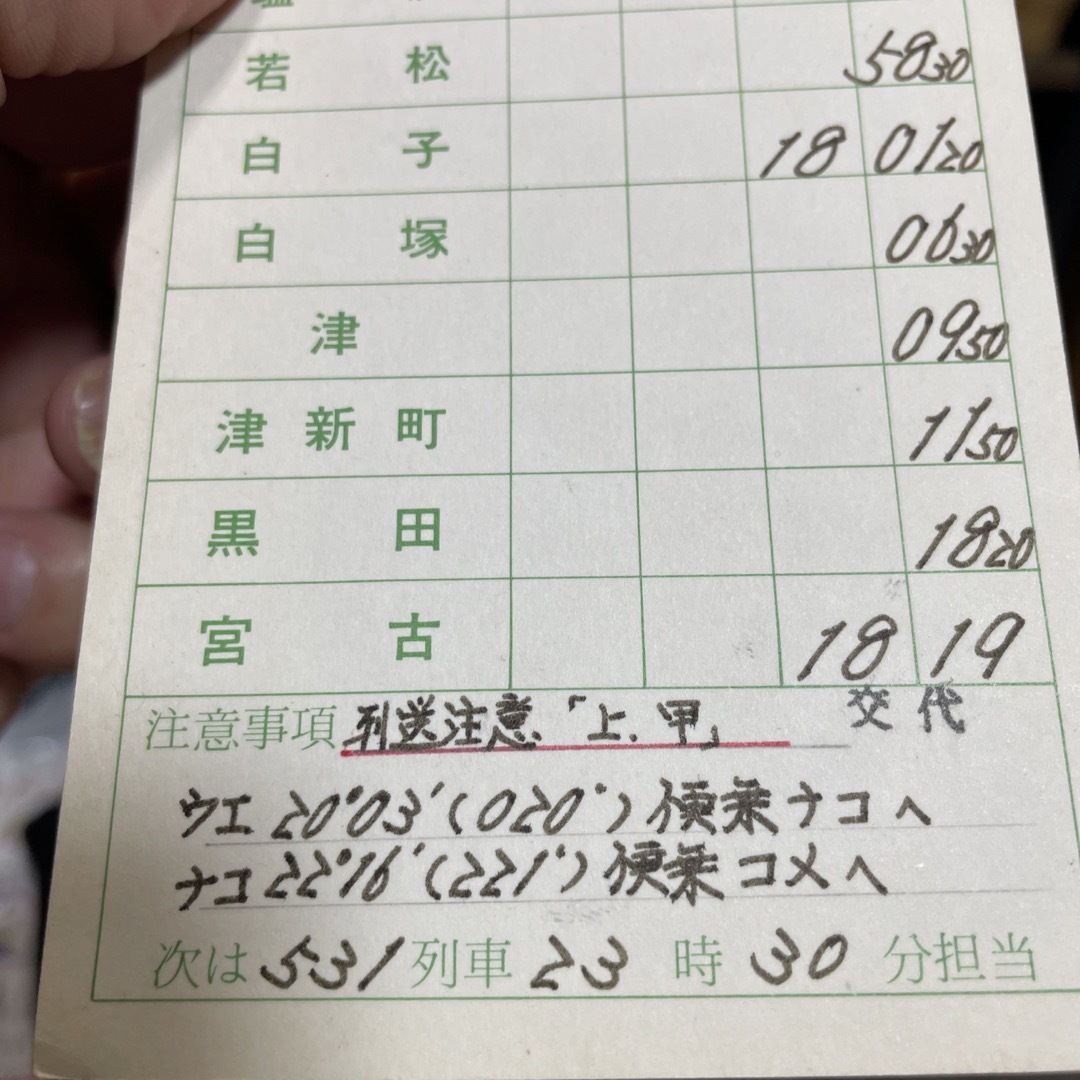 塩
若松 58 30
白子 18 01 20
白塚 06 30
津 09 50
津新町 11 50
黒田 18 20
宮古 18 19
交代
注意事項 列送注意、「上、甲」
ウエ 20°03'(020°)便乗ナコへ
ナコ 22°16'(221°)便乗コメへ
次は 531 列車 23 時 30 分担当